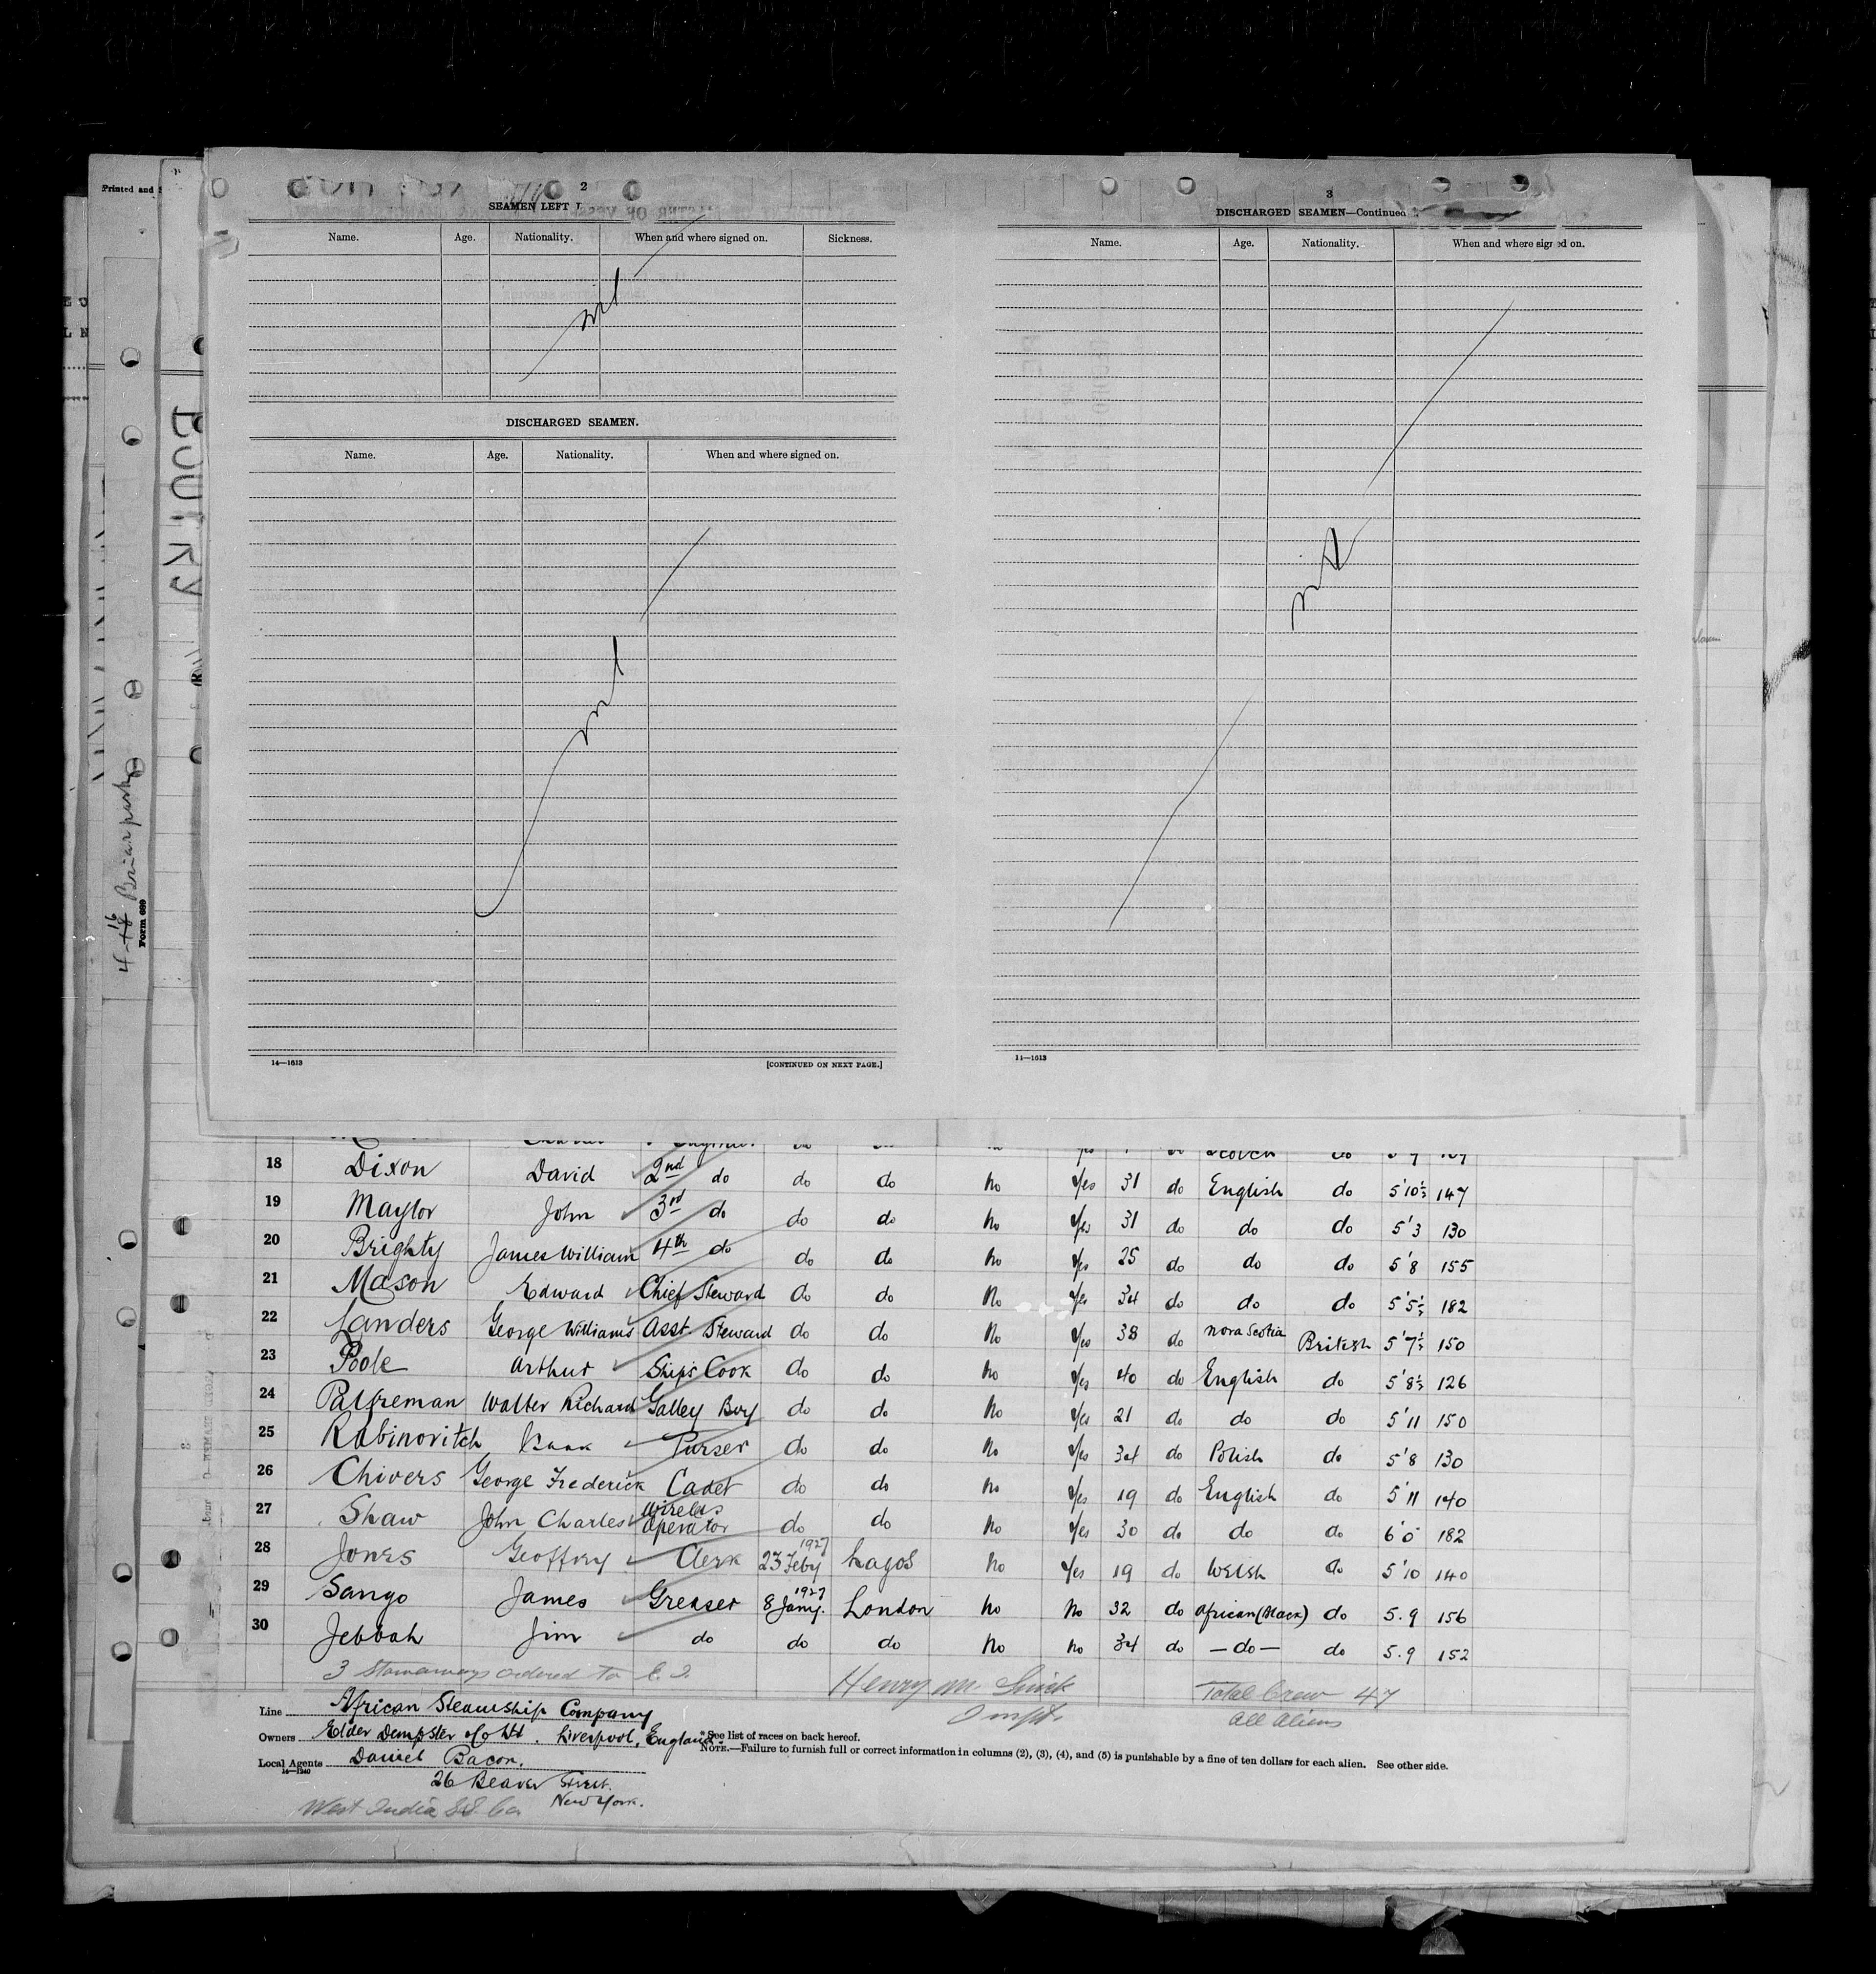 Printed and
2
SEAMEN LEFT I
Name. Age. Nationality. When and where signed on. Sickness.
nil
DISCHARGED SEAMEN.
Name. Age. Nationality. When and where signed on.
nil
14—1613 [CONTINUED ON NEXT PAGE.]
3
DISCHARGED SEAMEN—Continued
Name. Age. Nationality. When and where signed on.
nil
14—1613
BOUTRY
Form 689
18 Dixon David 2nd do do do No Yes 31 do English do 5'10½ 147
19 Maylor John 3rd do do do No Yes 31 do do do 5'3 130
20 Brighty James William 4th do do do No Yes 25 do do do 5'8 155
21 Mason Edward Chief Steward do do No Yes 34 do do do 5'5½ 182
22 Landers George Williams Asst. Steward do do No Yes 38 do Nova Scotia British 5'7½ 150
23 Poole Arthur Ships Cook do do No Yes 40 do English do 5'8½ 126
24 Palfreman Walter Richard Galley Boy do do No Yes 21 do do do 5'11 150
25 Rabinovitch Isaak Purser do do No Yes 34 do Polish do 5'8 130
26 Chivers George Frederick Cadet do do No Yes 19 do English do 5'11 140
27 Shaw John Charles Wireless Operator do do No Yes 30 do do do 6'0 182
28 Jones Geoffrey Clerk 23 Feby 1927 Lagos No Yes 19 do Welsh do 5'10 140
29 Sango James Greaser 8 Jany. 1927 London No No 32 do African (Black) do 5.9 156
30 Jebbah Jim do do do No No 34 do —do— do 5.9 152
3 Stowaways ordered to E.I.
Henry M
Total Crew 47
All Aliens
Line African Steamship Company
Owners Elder Dempster & Co Ltd. Liverpool, England
* See list of races on back hereof.
NOTE.—Failure to furnish full or correct information in columns (2), (3), (4), and (5) is punishable by a fine of ten dollars for each alien. See other side.
Local Agents Daniel Bacon.
14—1240
26 Beaver Street.
New York.
West India S.S. Co